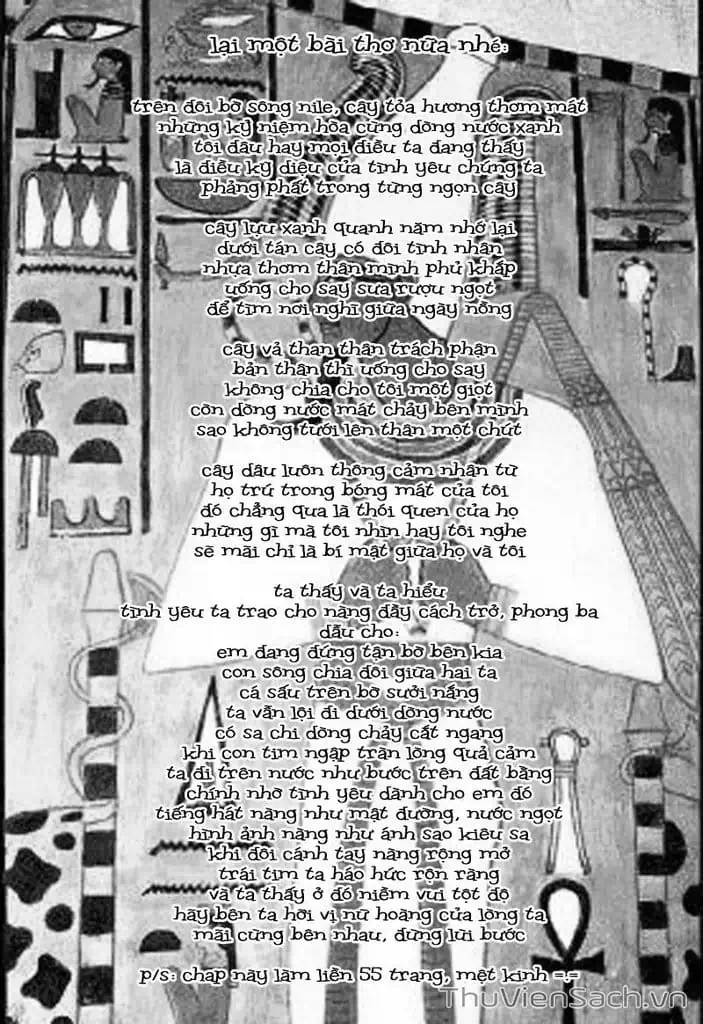 lại một bài thơ nữa nhé:
trên đôi bờ sông nile, cây tỏa hương thơm mát
những kỷ niệm hòa cùng dòng nước xanh
tôi đâu hay mọi điều ta đang thấy
là điều kỳ diệu của tình yêu chúng ta
phảng phất trong từng ngọn cây
cây lựu xanh quanh năm nhớ lại
dưới tán cây có đôi tình nhân
nhựa thơm thân mình phủ khắp
uống cho say sưa rượu ngọt
để tìm nơi nghĩ giữa ngày nồng
cây vả than thân trách phận
bản thân thì uống cho say
không chia cho tôi một giọt
còn dòng nước mát chảy bên mình
sao không tưới lên thân một chút
cây dâu luôn thông cảm nhân từ
họ trú trong bóng mát của tôi
đó chẳng qua là thói quen của họ
những gì mà tôi nhìn hay tôi nghe
sẽ mãi chỉ là bí mật giữa họ và tôi
ta thấy và ta hiểu
tình yêu ta trao cho nàng đầy cách trở, phong ba
dẫu cho:
em đang đứng tận bờ bên kia
con sông chia đôi giữa hai ta
cá sấu trên bờ sưởi nắng
ta vẫn lội đi dưới dòng nước
có sa chi dòng chảy cắt ngang
khi con tim ngập tràn lòng quả cảm
ta đi trên nước như bước trên đất bằng
chính nhờ tình yêu dành cho em đó
tiếng hát nàng như mật đường, nước ngọt
hình ảnh nàng như ánh sao kiêu sa
khi đôi cánh tay nàng rộng mở
trái tim ta háo hức rộn ràng
và ta thấy ở đó niềm vui tột độ
hãy bên ta hỡi vị nữ hoàng của lòng ta
mãi cùng bên nhau, đừng lùi bước
p/s: chap này làm liền 55 trang, mệt kinh =.=
ThuVienSach.vn